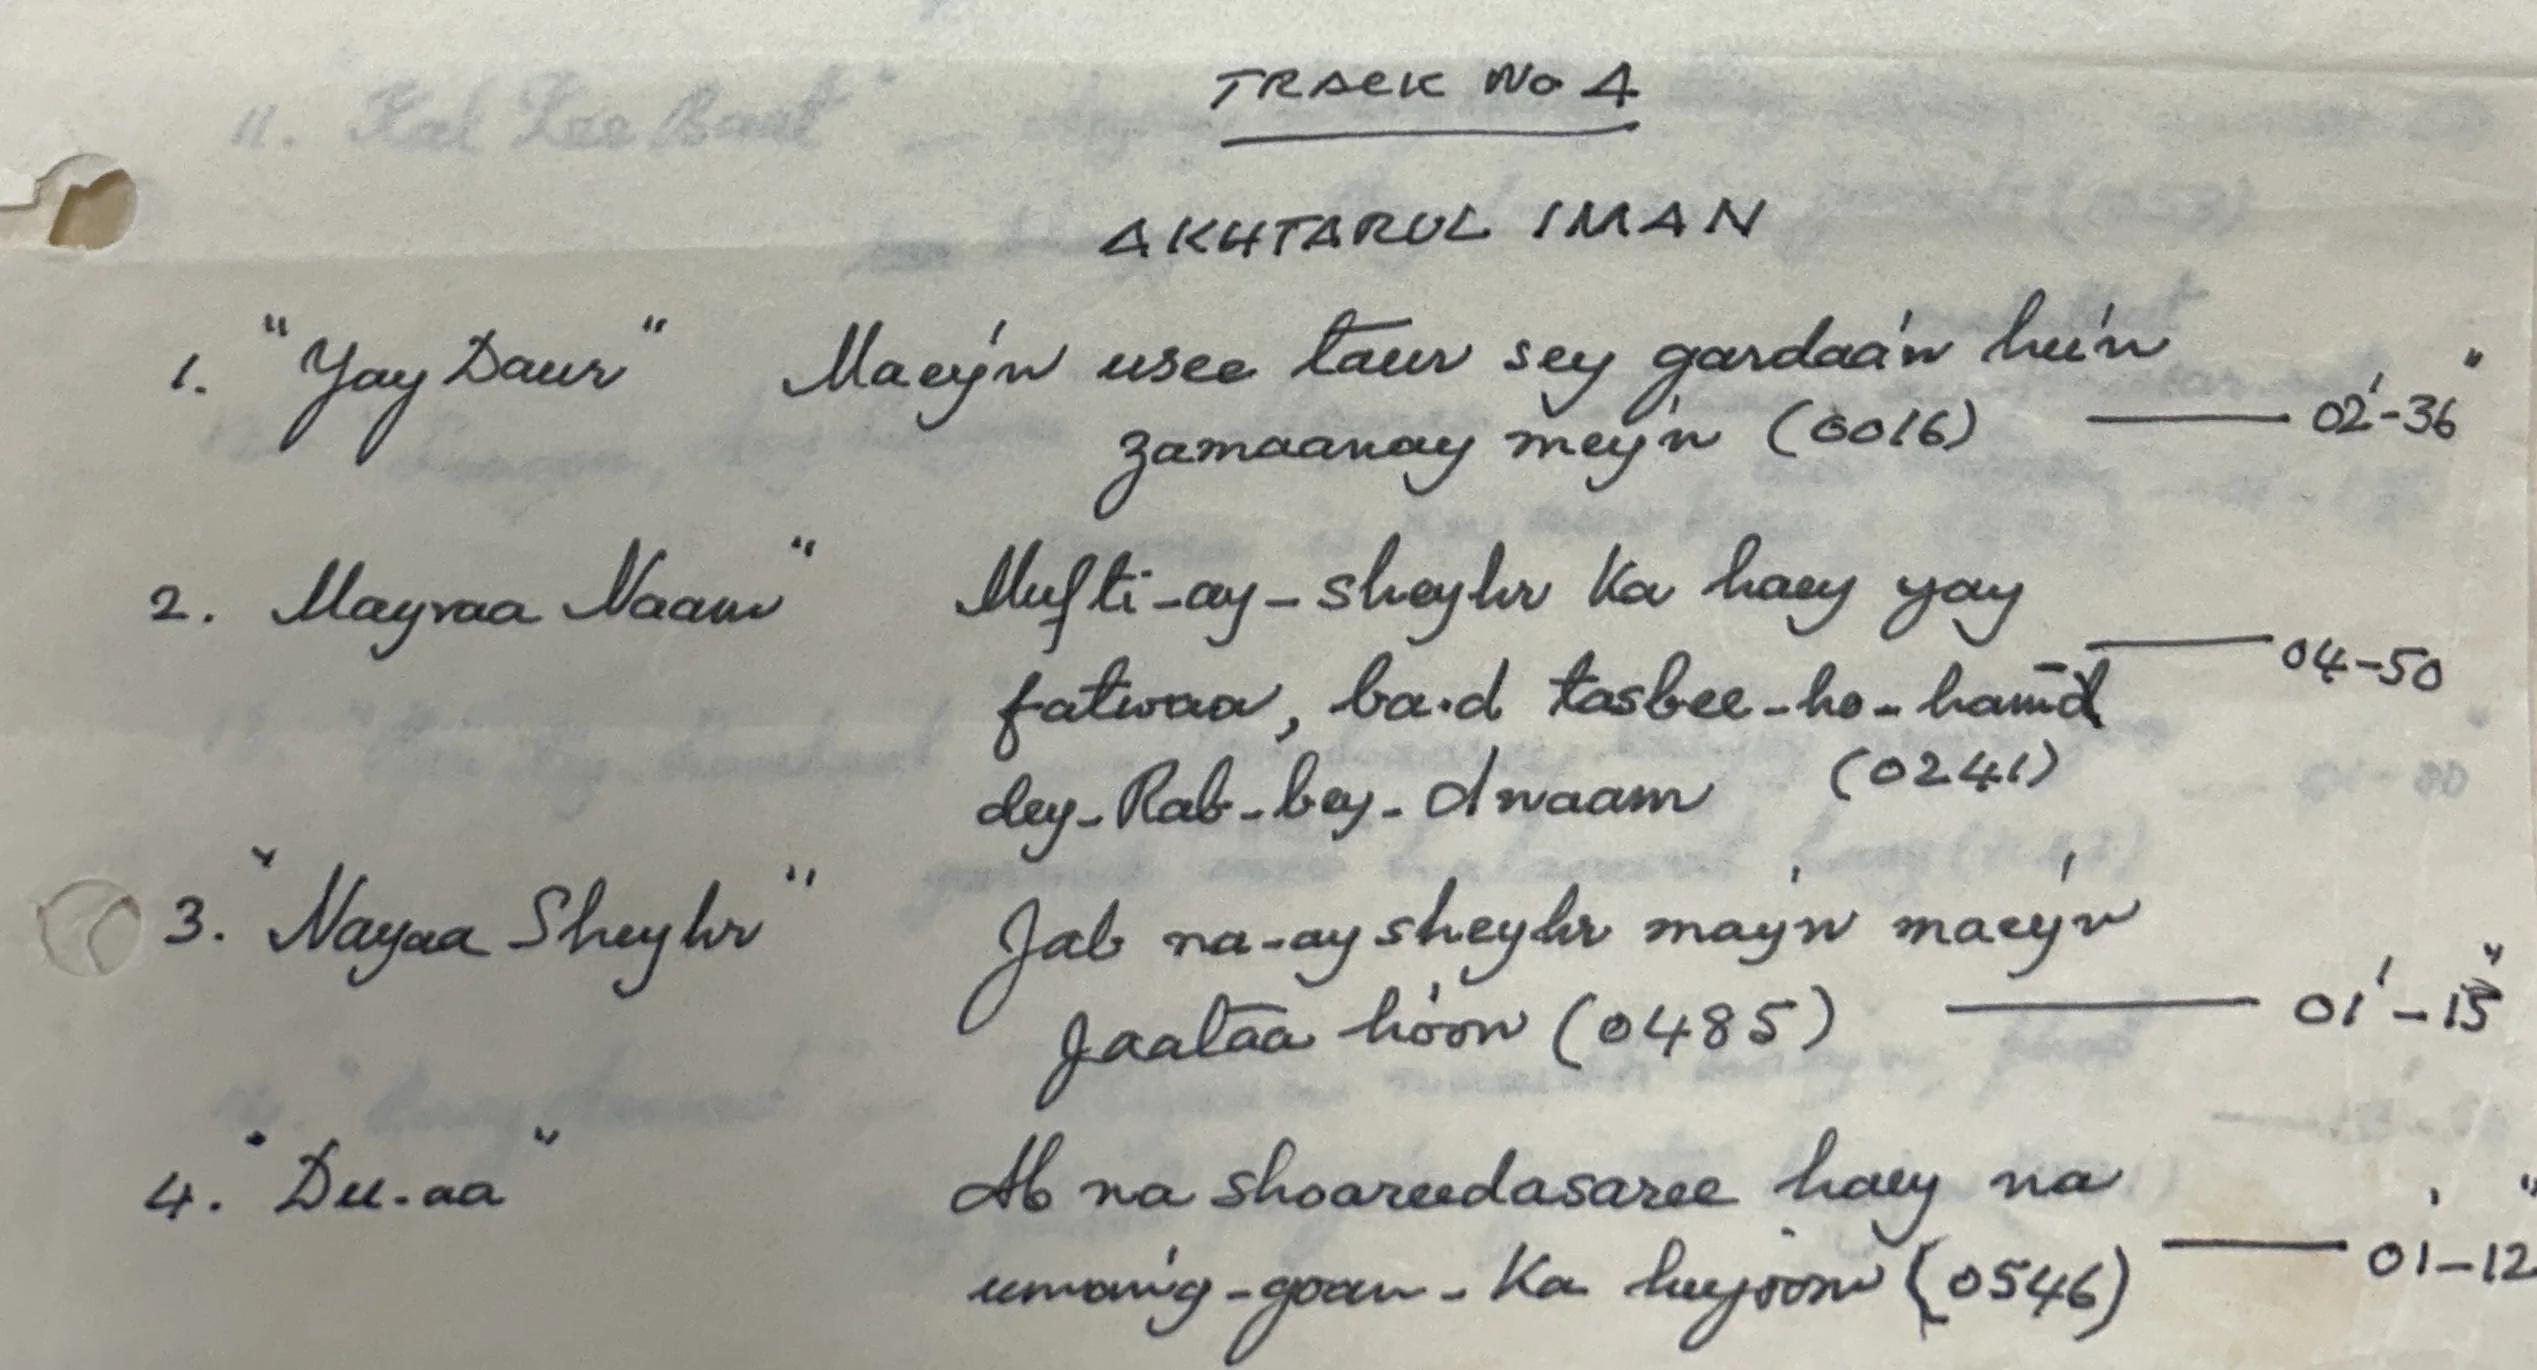 TRACK No 4
AKHTARUL IMAN
1. "Yay Daur" Maeýn usee taur sey gardaáń húń
zamaanay meýn (0016) —— 02'-36"
2. Mayraa Naam" Mufti-ay-sheyhr ka haey yay
fatwaa, ba.d tasbee-ho-hamd —— 04-50
dey-Rab-bey-Anaam (0241)
3. "Nayaa Sheyhr" Jab na-ay sheyhr mayń maeýn
jaataa hóon (0485) —— 01'-15"
4. "Du-aa" Ab na shoareedasaree haey na
-ka hujoom (0546) —— 01'-12"